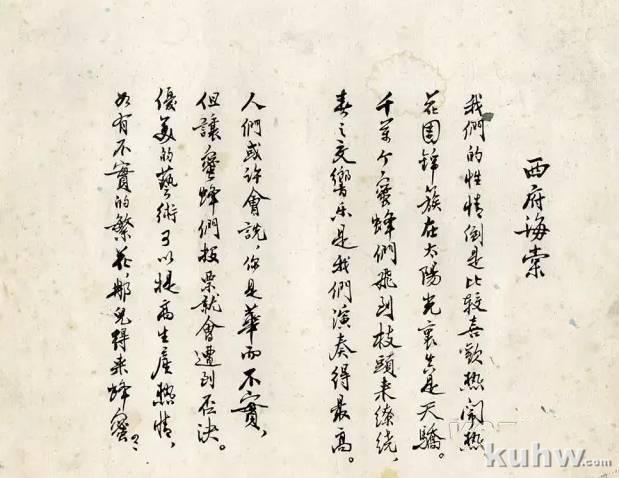 西府海棠
我們的性情倒是比較喜歡熱鬧熱
花團錦簇在太陽光裏真是天驕。
千萬个蜜蜂們飛到枝頭來繚繞，
春之交響乐是我們演奏得最高。
人們或許會說，你是華而不實，
但讓蜜蜂們投票就會遭到否決。
優美的藝術可以提高生產熱情，
如有不實的繁花，那兒得來蜂蜜？
kuhw.com